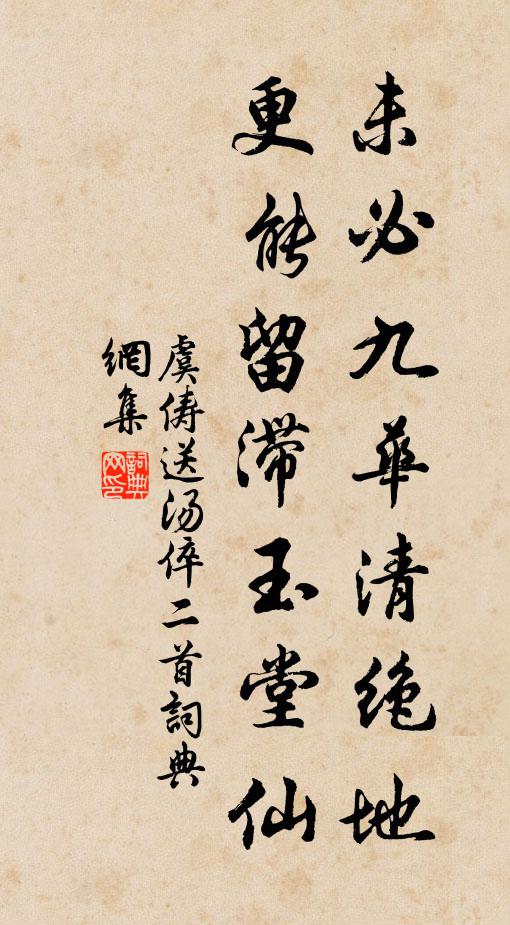 未必九華清絶地
更能留滞玉堂仙
虞儔送湯倅二首詞典
網集
詞典網印